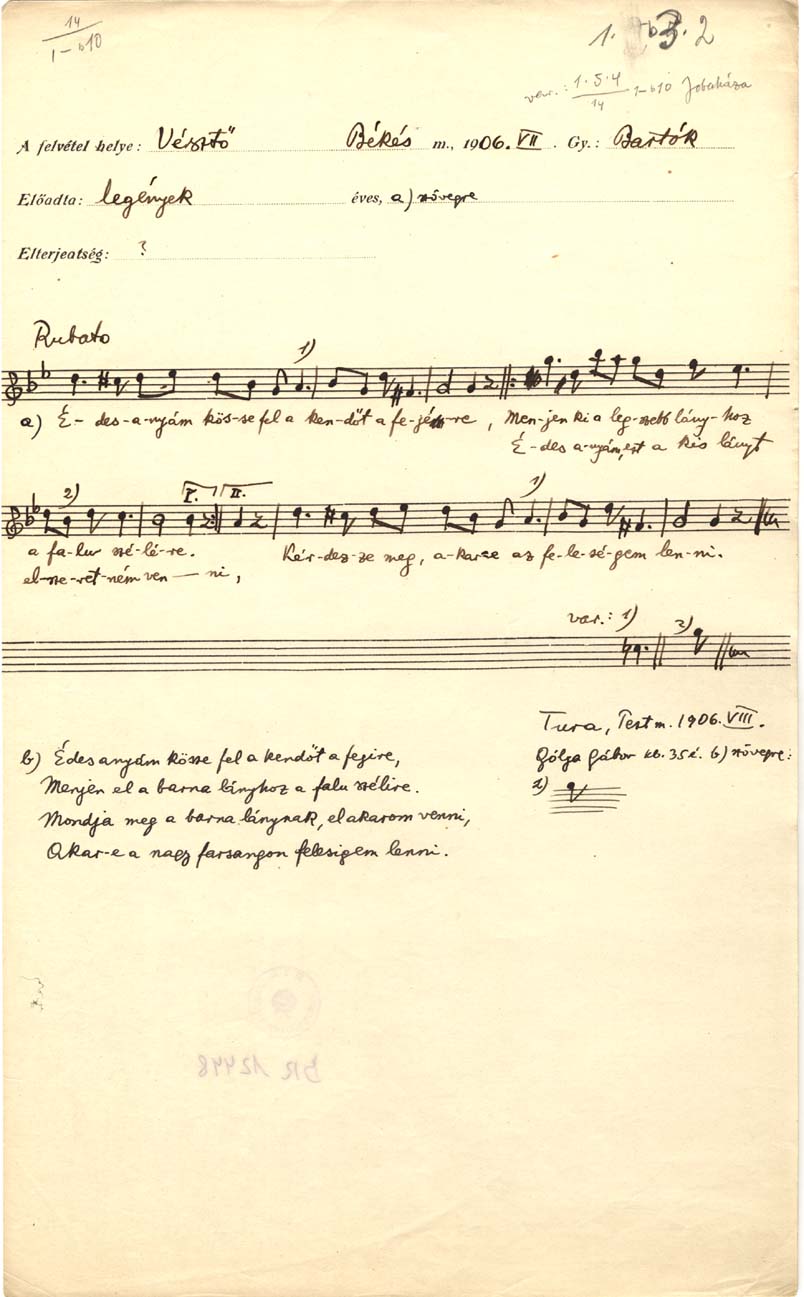 14
I-b10
1. 2
var.: 1.5.4 / 14 I-b10 Jobaháza
A felvétel helye: Vésztő Békés m., 1906. VII. Gy.: Bartók
Előadta: legények éves, a) szövegre
Elterjeatség: ?
Rubato
1)
a) É- des- a-nyám kös-se fel a ken-dőt a fe-jé- re, Men-jen ki a leg-szebb lány- hoz
É-des a-nyám, ezt a kis lányt
2) I. II. 1)
a fa-lu szé-lé-re. Kér-dez-ze meg, a-kar-e az fe-le-sé-gem len-ni.
el-sze-ret-ném ven — ni,
var.: 1) 2)
Tura, Pest m. 1906. VIII.
Gólya Gábor kb. 35 é. b) szövegre:
2)
b) Édesanyám kösse fel a kendőt a fejire,
Menjen el a barna lányhoz a falu szélire.
Mondja meg a barna lánynak, elakarom venni,
Akar-e a nagy farsangon felesigem lenni.
BR 12448